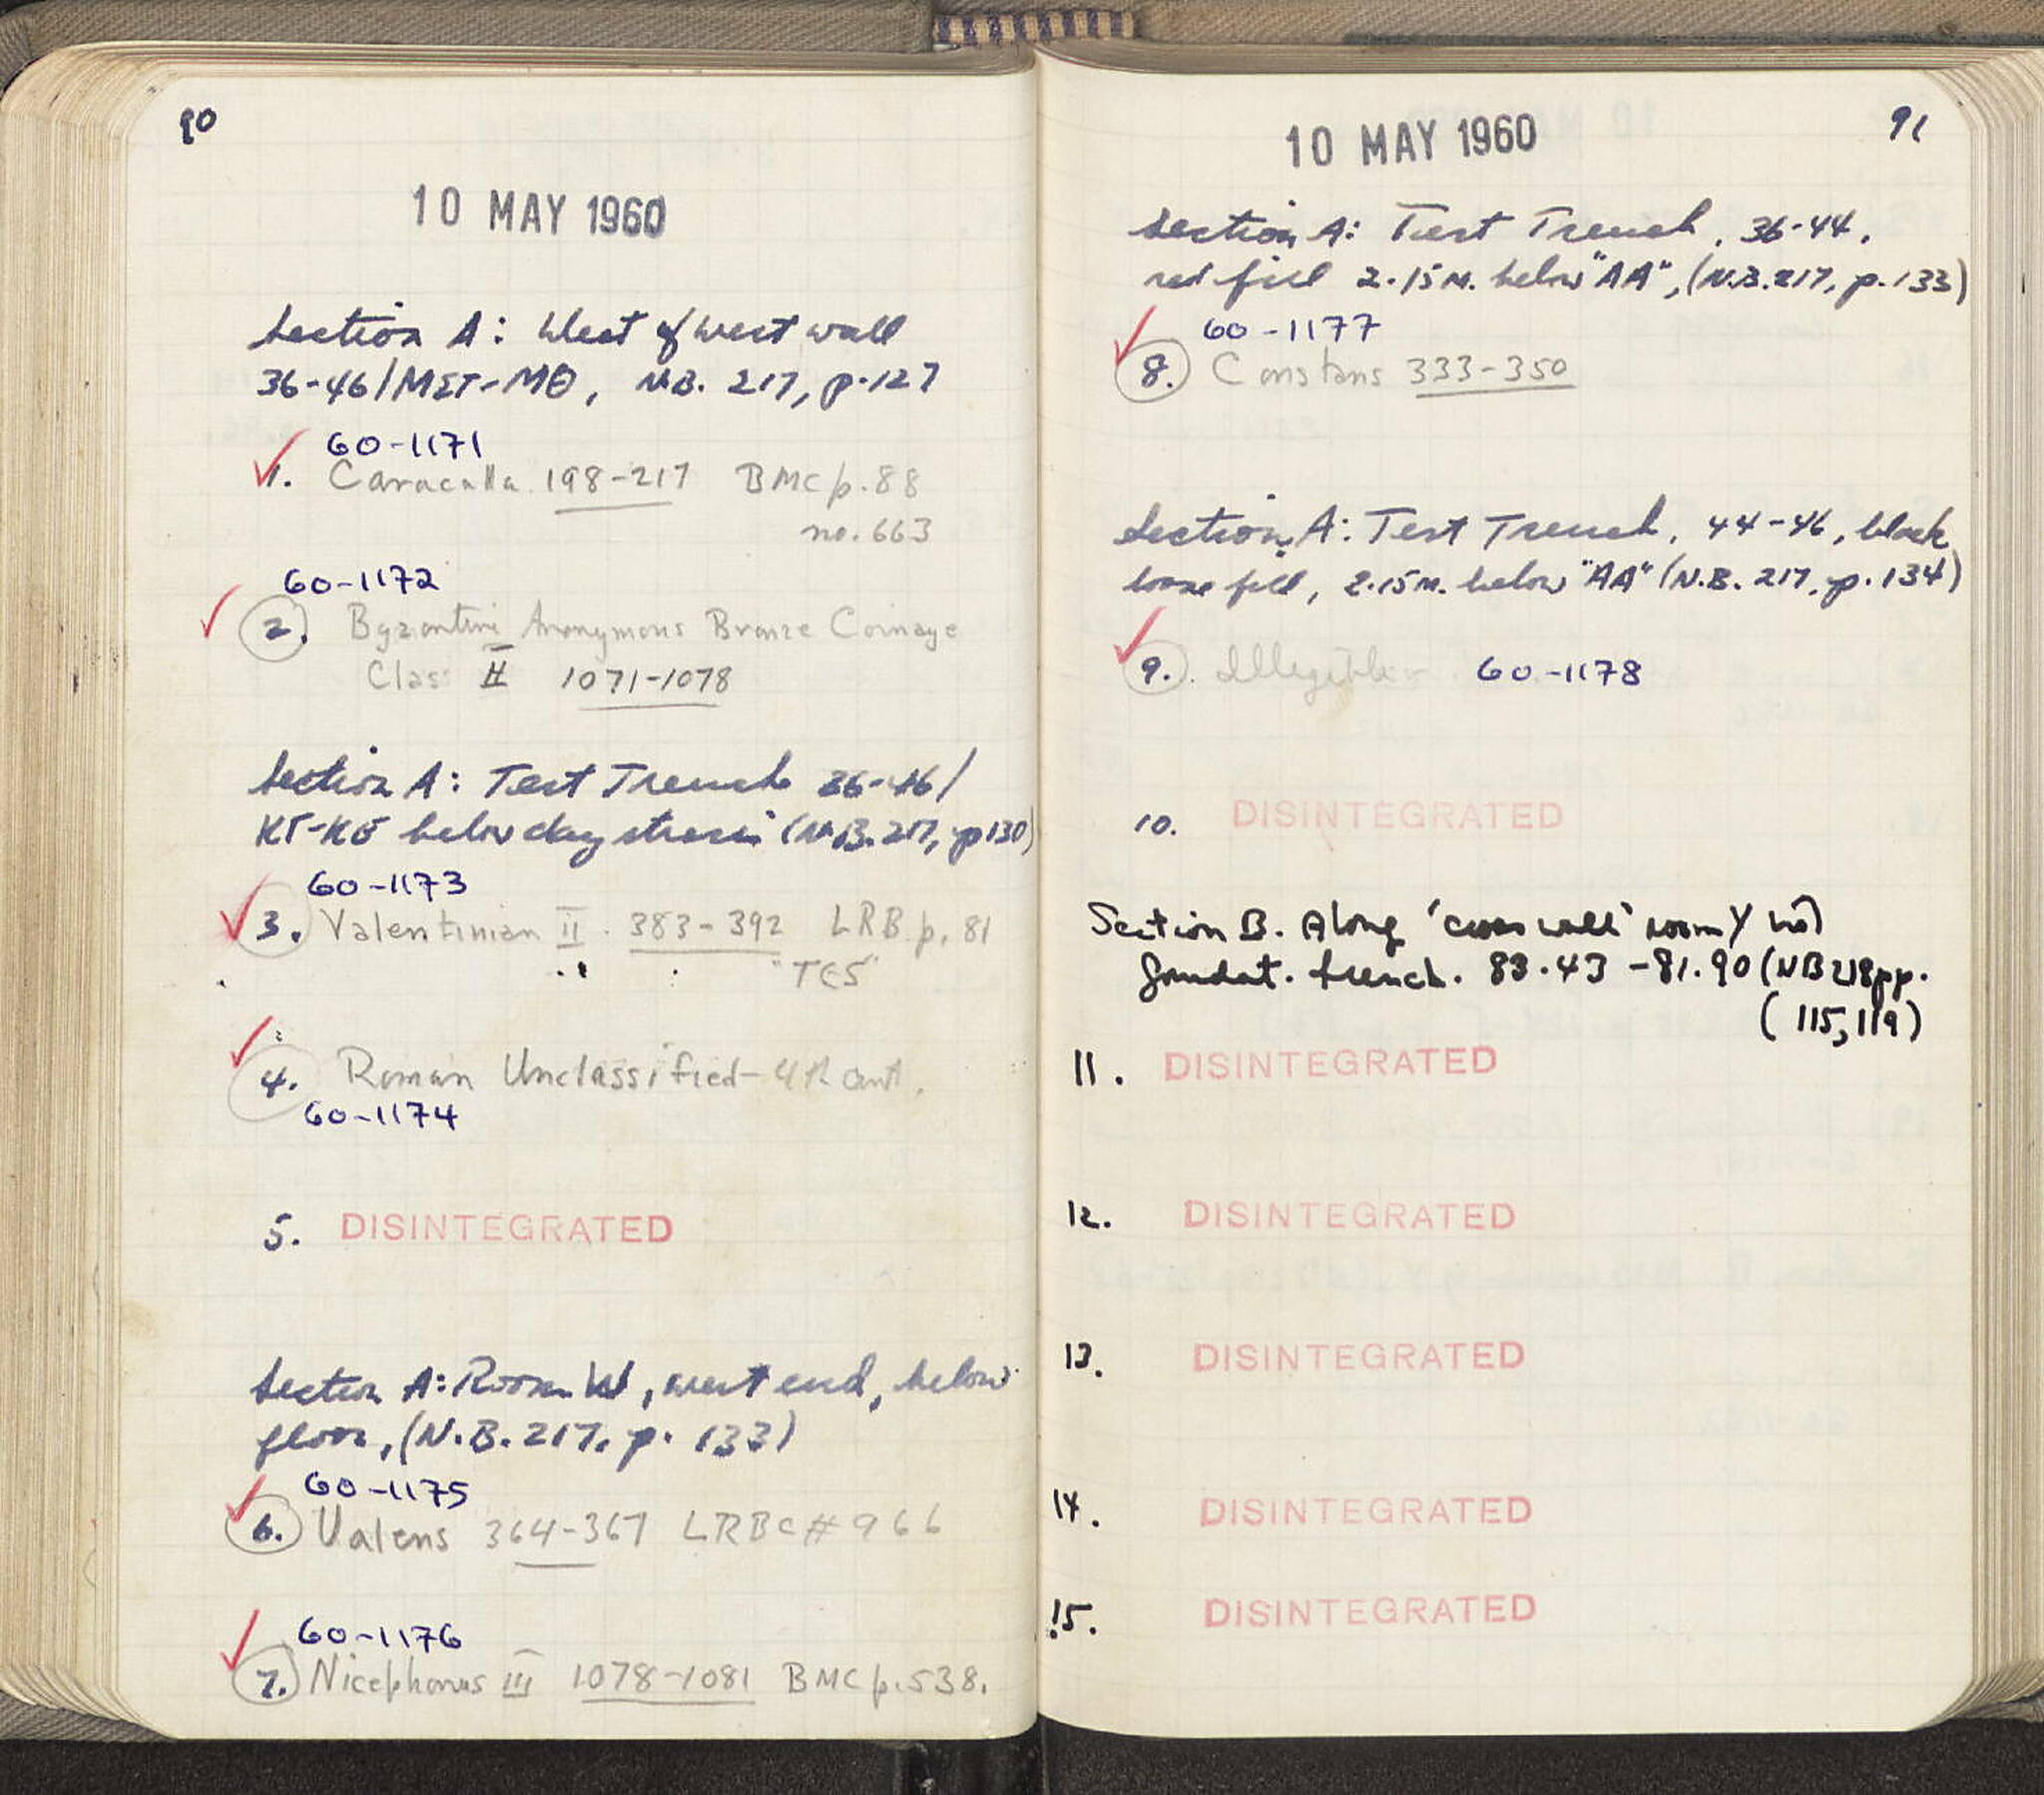 90
10 MAY 1960
Section A: West of west wall
36-46/ΜΣΤ-ΜΘ, N.B. 217, p.127
60-1171
1. Caracalla 198-217 BMC p.88
no. 663
60-1172
2. Byzantine Anonymous Bronze Coinage
Class II 1071-1078
Section A: Test Trench 36-46/
below clay (N.B. 217, p 130)
60-1173
3. Valentinian II 383-392 LRB p. 81
"TES"
4. Roman Unclassified - 4th cent.
60-1174
5. DISINTEGRATED
Section A: Room W, west end, below
floor, (N.B. 217, p. 133)
60-1175
6. Valens 364-367 LRBC # 966
60-1176
7. Nicephorus III 1078-1081 BMC p. 538.
91
10 MAY 1960
Section A: Test Trench, 36-44,
red fill 2.15 M. below "AA", (N.B. 217, p. 133)
60-1177
8. Constans 333-350
Section A: Test Trench, 44-46, black
loose fill, 2.15 M. below "AA" (N.B. 217, p. 134)
9. Illegible - 60-1178
10. DISINTEGRATED
Section B. Along 'cross wall' room Y
foundat. trench. 83.43 - 81.90 (NB 218 pp.
(115, 119)
11. DISINTEGRATED
12. DISINTEGRATED
13. DISINTEGRATED
14. DISINTEGRATED
15. DISINTEGRATED